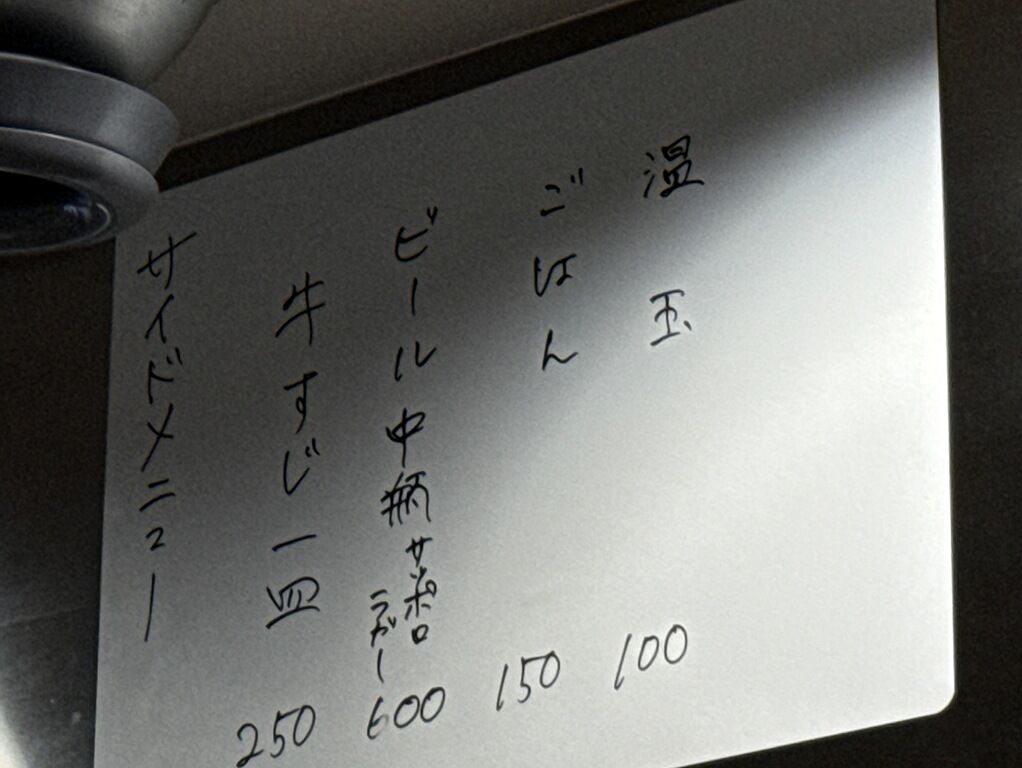 サイドメニュー
牛すじ一皿 250
ビール中瓶 サッポロ
ラガー 600
ごはん 150
温玉 100